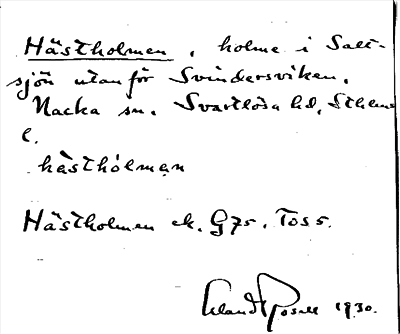 Hästholmen, holme i Salt-
sjön utanför Svindersviken.
Nacka sn. Svartlösa hd, Sthlms
l.
hästhólman
Hästholmen ek. G75. Tos5.
Erland Rosell 1930.